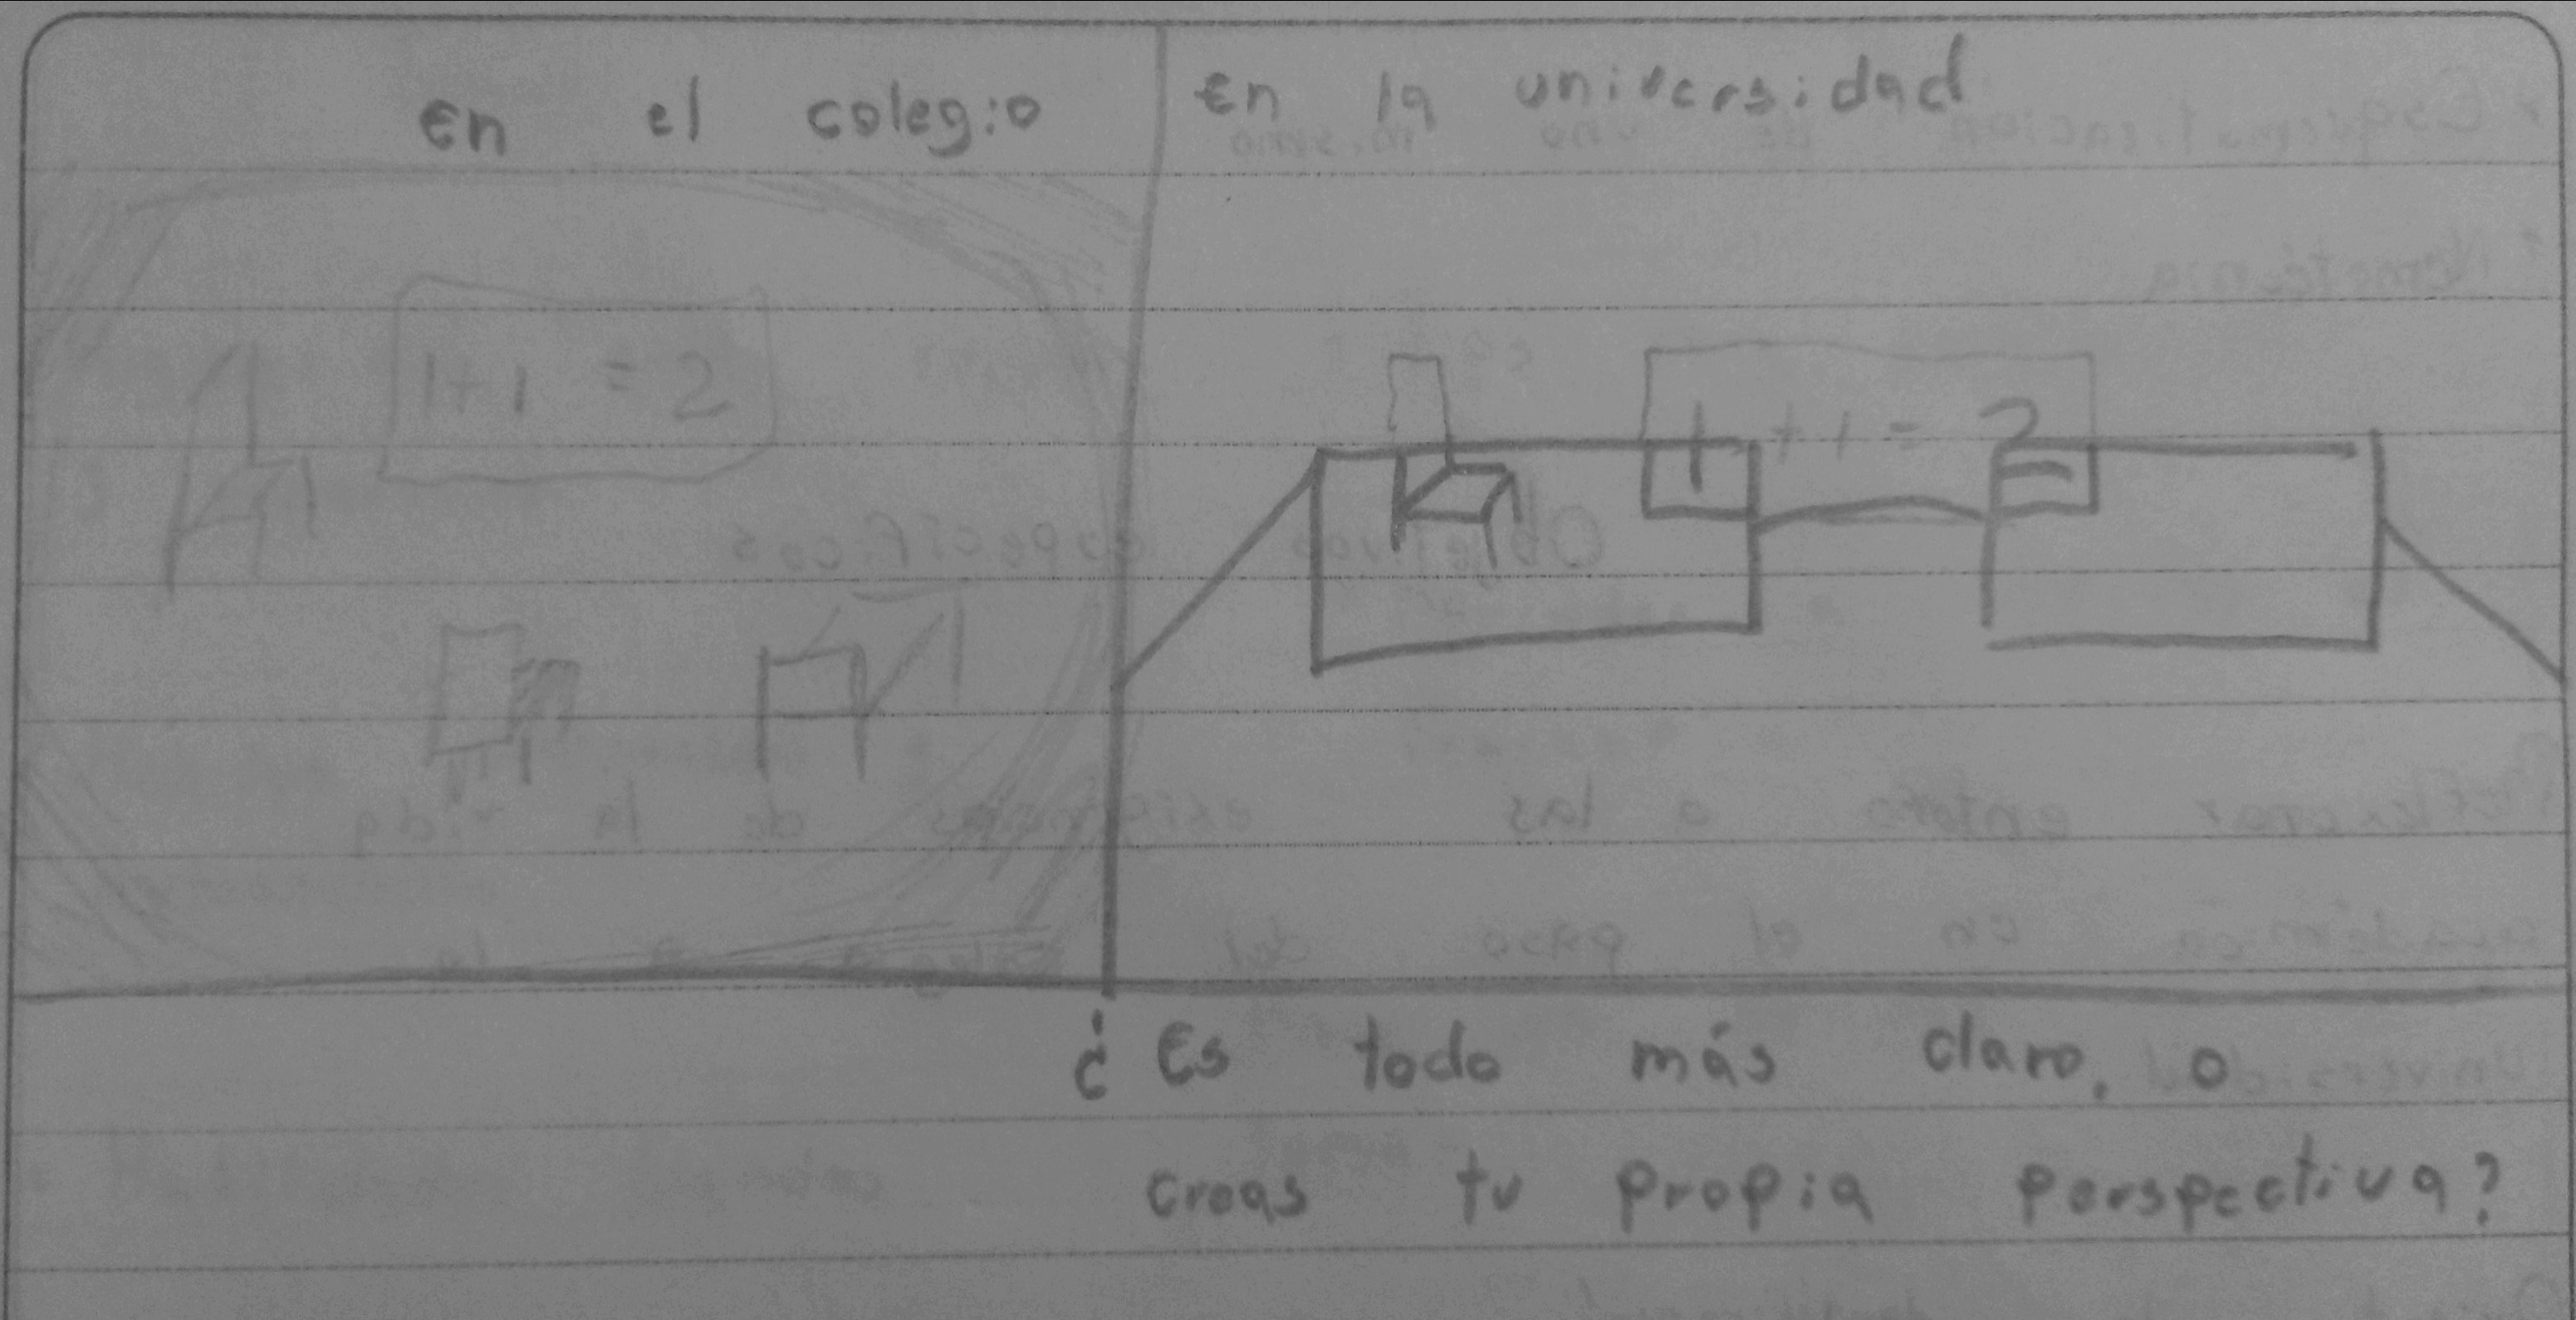 en el colegio
En la universidad
1+1 = 2
1 + 1 = 2
¿ Es todo más claro, o
creas tu propia perspectiva?